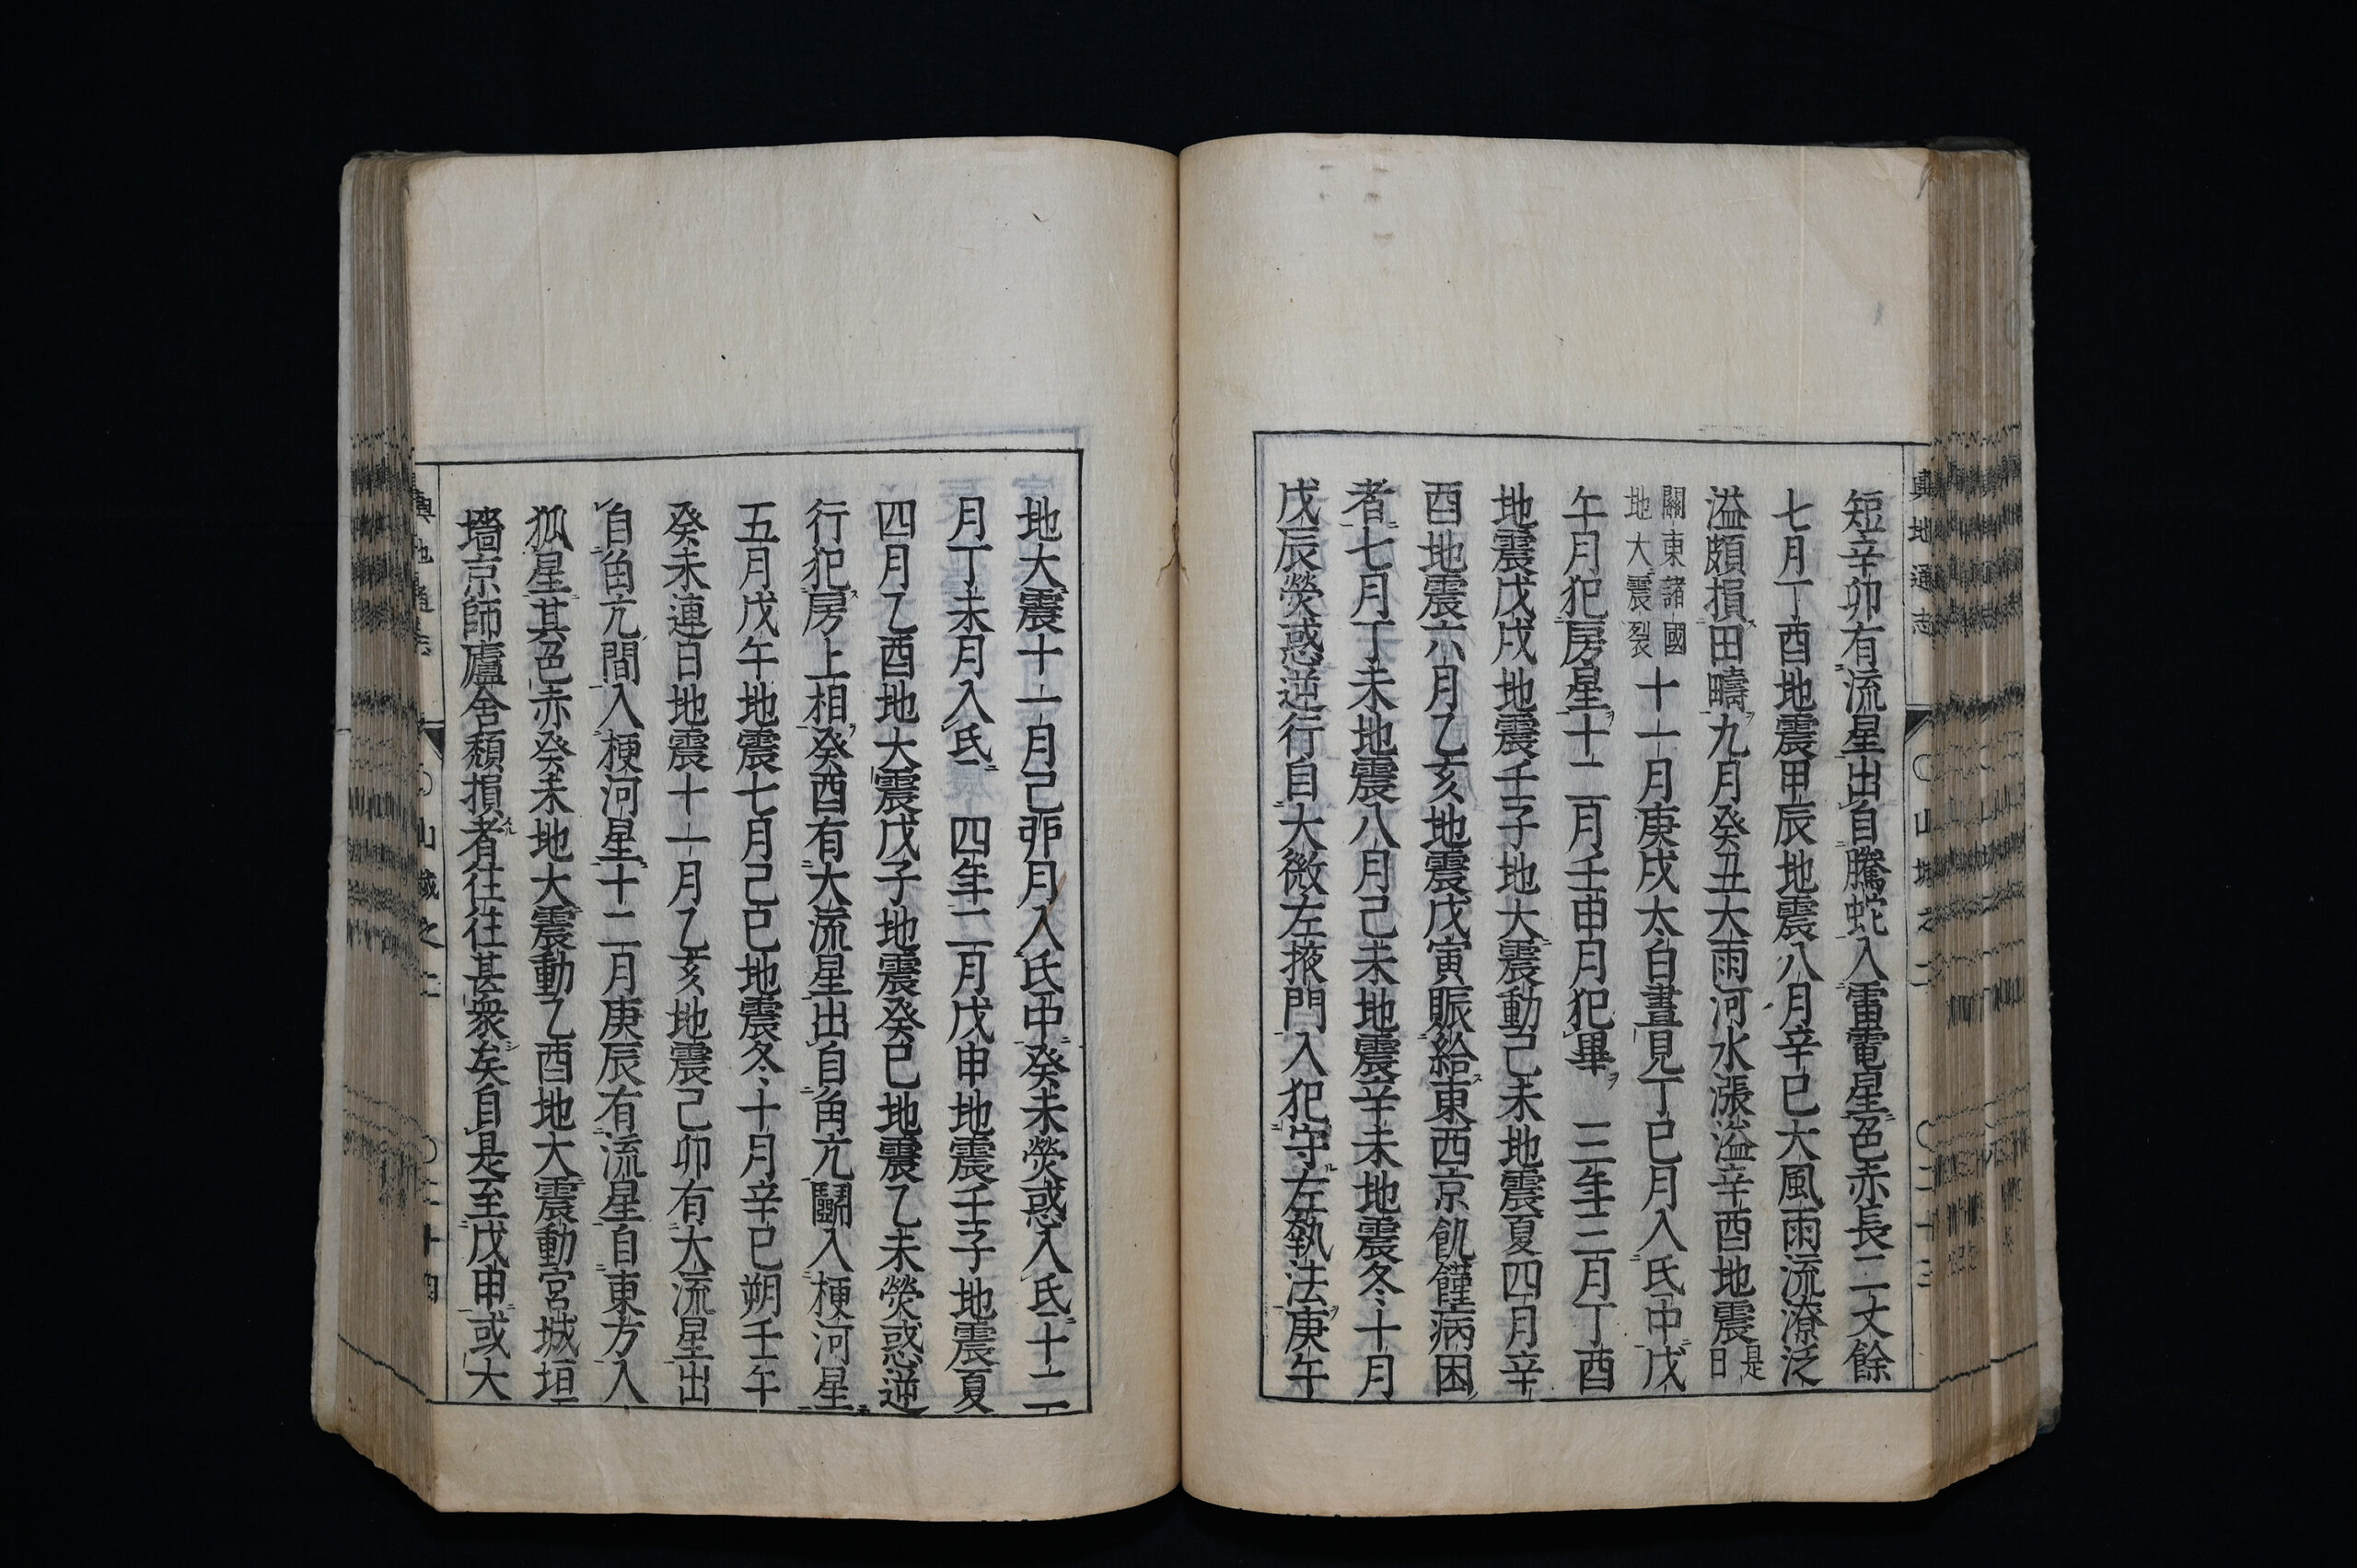 輿地通志 〇山城之二 〇二十三
短辛卯有流星出自騰蛇入雷電星色赤長二丈餘
七月丁酉地震甲辰地震八月辛巳大風雨流潦泛
溢頗損田疇九月癸丑大雨河水漲溢辛酉地震是日
關東諸國地大震裂十一月庚戌太白晝見丁巳月入氐中戊
午月犯房星十二月壬申月犯畢 三年三月丁酉
地震戊戌地震壬子地大震動己未地震夏四月辛
酉地震六月乙亥地震戊寅賑給東西京飢饉病困
者七月丁未地震八月己未地震辛未地震冬十月
戊辰熒惑逆行自大微左掖門入犯守左執法庚午
地大震十一月己卯月入氐中癸未熒惑入氐十二
月丁未月入氐 四年二月戊申地震壬子地震夏
四月乙酉地大震戊子地震癸巳地震乙未熒惑逆
行犯房上相癸酉有大流星出自角亢鬭入梗河星
五月戊午地震七月己巳地震冬十月辛巳朔壬午
癸未連日地震十一月乙亥地震己卯有大流星出
自角亢間入梗河星十二月庚辰有流星自東方入
狐星其色赤癸未地大震動乙酉地大震動宮城垣
墻京師廬舍頽損者往往甚衆矣自是至戊申或大
輿地通志 〇山城之二 〇二十四